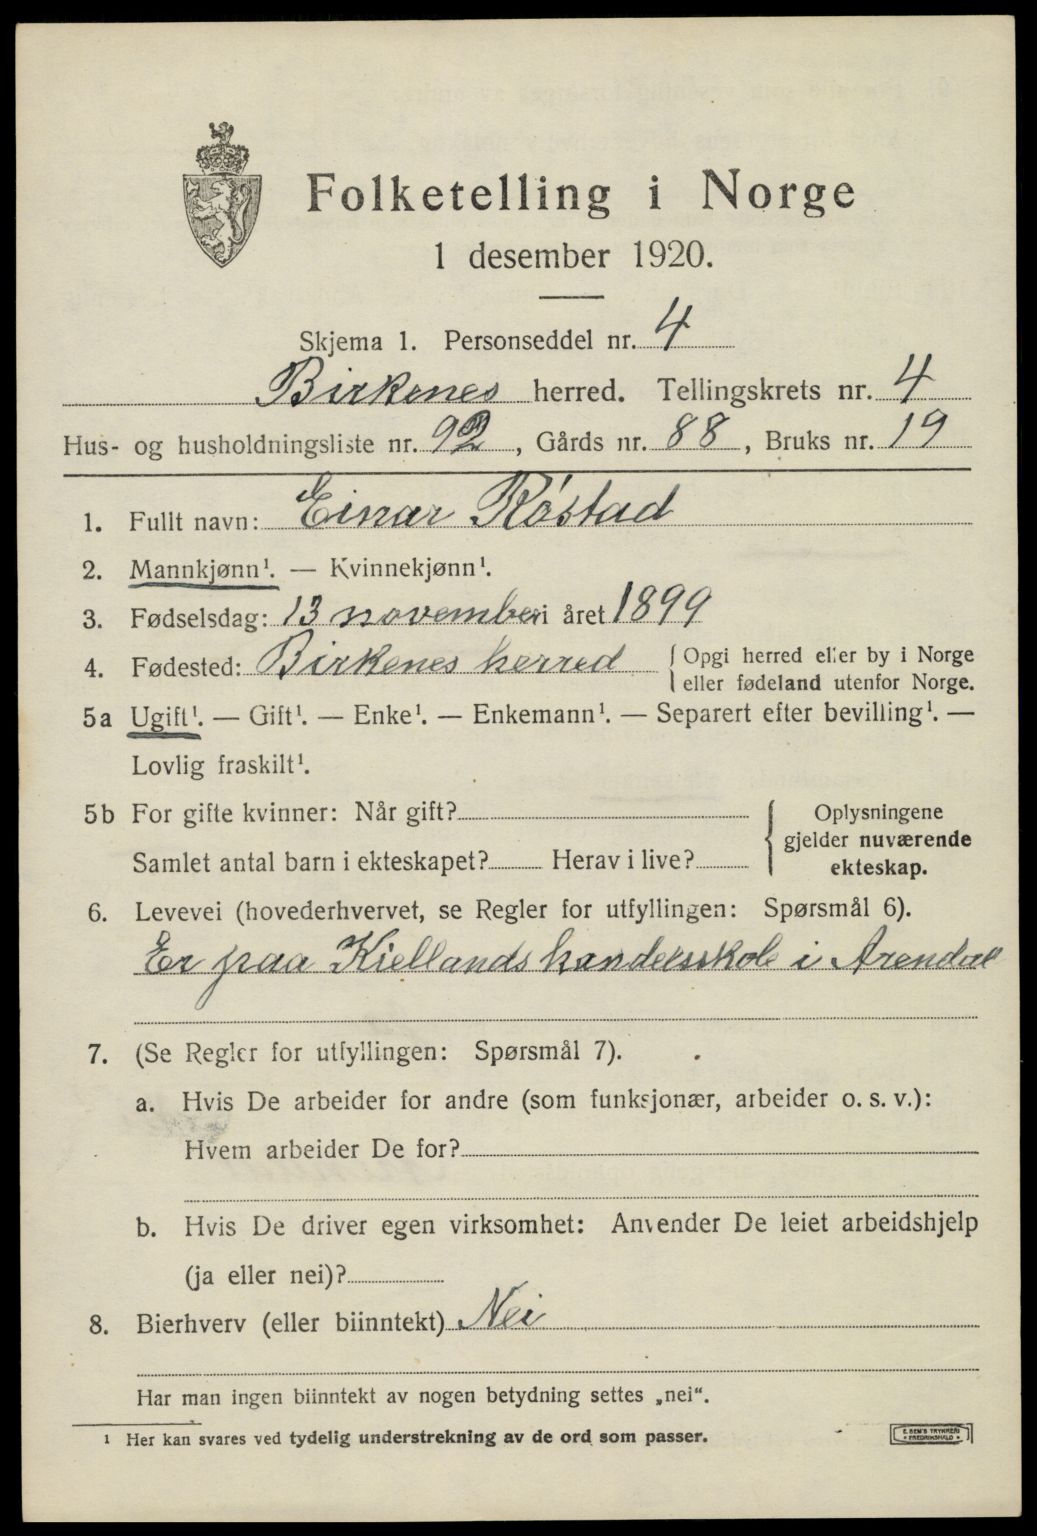 Folketelling i Norge
1 desember 1920.
Skjema 1. Personseddel nr. 4
Birkenes herred. Tellingskrets nr. 4
Hus- og husholdningsliste nr. 92, Gårds nr. 88, Bruks nr. 19
1. Fullt navn: Einar Róstad
2. Mannkjønn¹. — Kvinnekjønn¹.
3. Fødselsdag: 13 november i året 1899
4. Fødested: Birkenes herred { Opgi herred eller by i Norge
eller fødeland utenfor Norge.
5a Ugift¹. — Gift¹. — Enke¹. — Enkemann¹. — Separert efter bevilling¹. —
Lovlig fraskilt¹.
5b For gifte kvinner: Når gift?
Samlet antal barn i ekteskapet? Herav i live?
Oplysningene
gjelder nuværende
ekteskap.
6. Levevei (hovederhvervet, se Regler for utfyllingen: Spørsmål 6).
Er paa Kiellands handelsskole i Arendal
7. (Se Regler for utfyllingen: Spørsmål 7).
a. Hvis De arbeider for andre (som funksjonær, arbeider o. s. v.):
Hvem arbeider De for?
b. Hvis De driver egen virksomhet: Anvender De leiet arbeidshjelp
(ja eller nei)?
8. Bierhverv (eller biinntekt) Nei
Har man ingen biinntekt av nogen betydning settes „nei“.
¹ Her kan svares ved tydelig understrekning av de ord som passer.
E. SEM'S TRYKKERI
FREDRIKSHALD